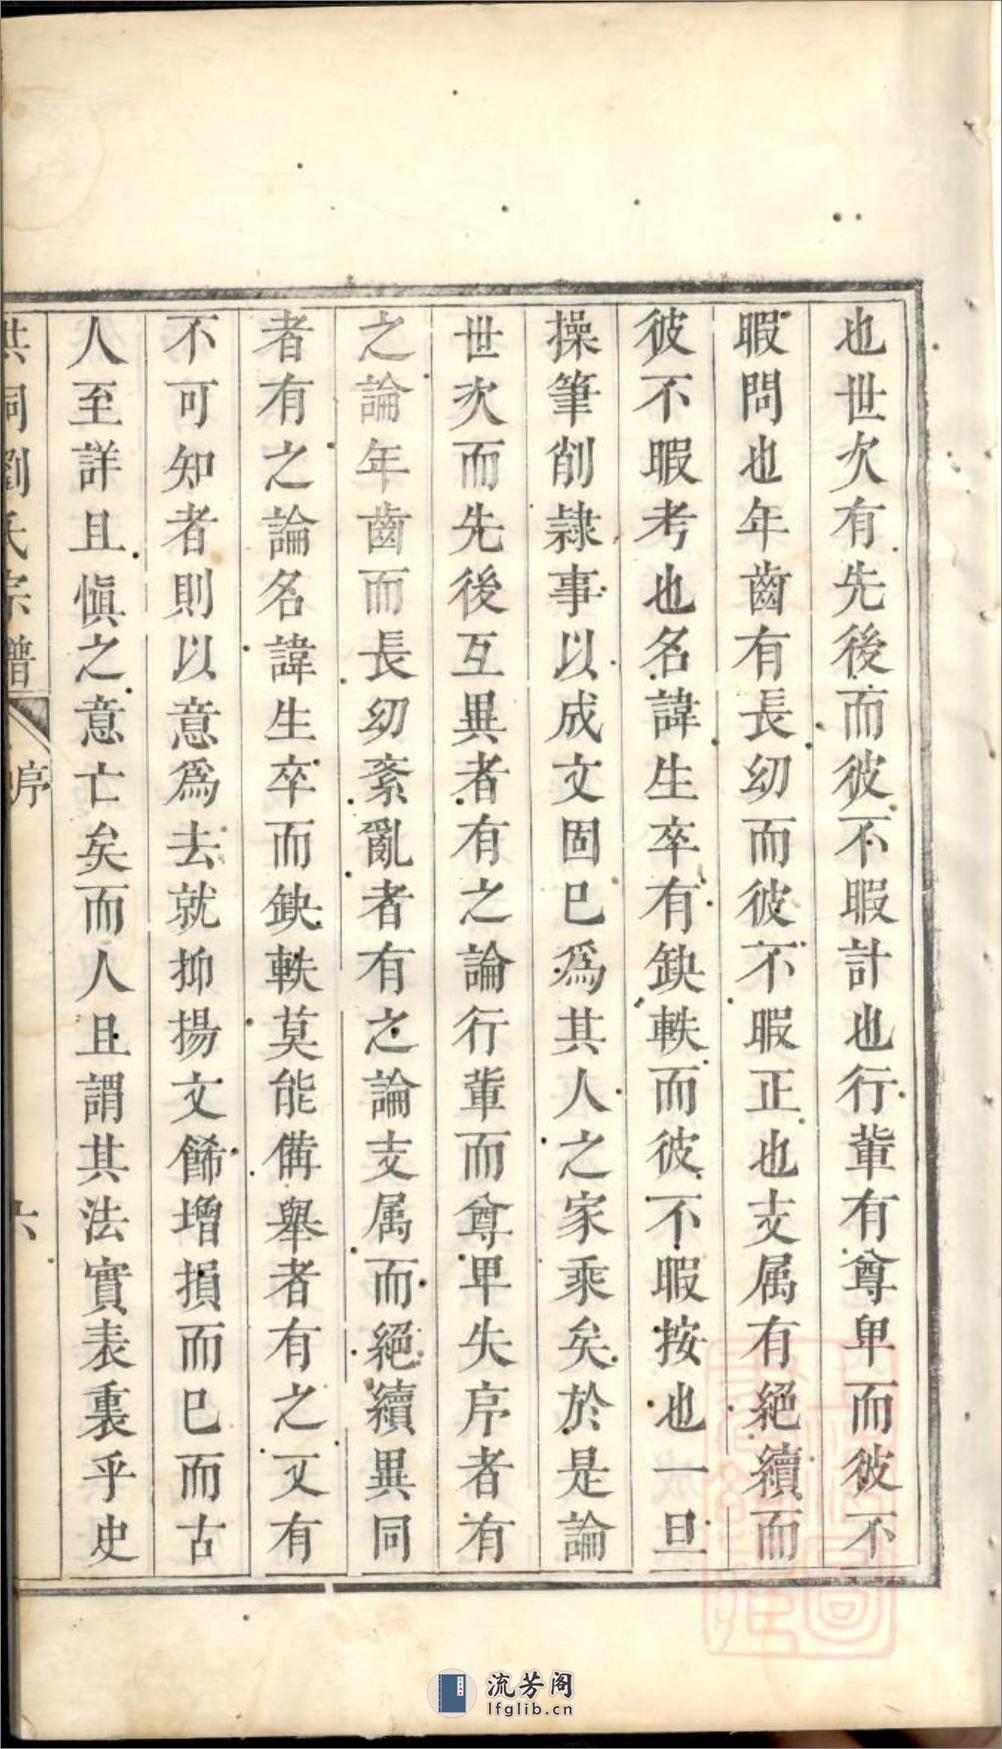 也世次有先後而彼不暇計也行輩有尊卑而彼不
暇問也年齒有長幼而彼不暇正也支属有絕續而
彼不暇考也名諱生卒有缺軼而彼不暇按也一旦
操筆削隷事以成文固已為其人之家乘矣於是論
世次而先後互異者有之論行輩而尊卑失序者有
之論年齒而長幼紊亂者有之論支属而絕續異同
者有之論名諱生卒而缺軼莫能備舉者有之又有
不可知者則以意為去就抑揚文餙增損而已而古
人至詳且慎之意亡矣而人且謂其法實表裏乎史
洪洞劉氏宗譜
序
六
流芳阁
lfglib.cn